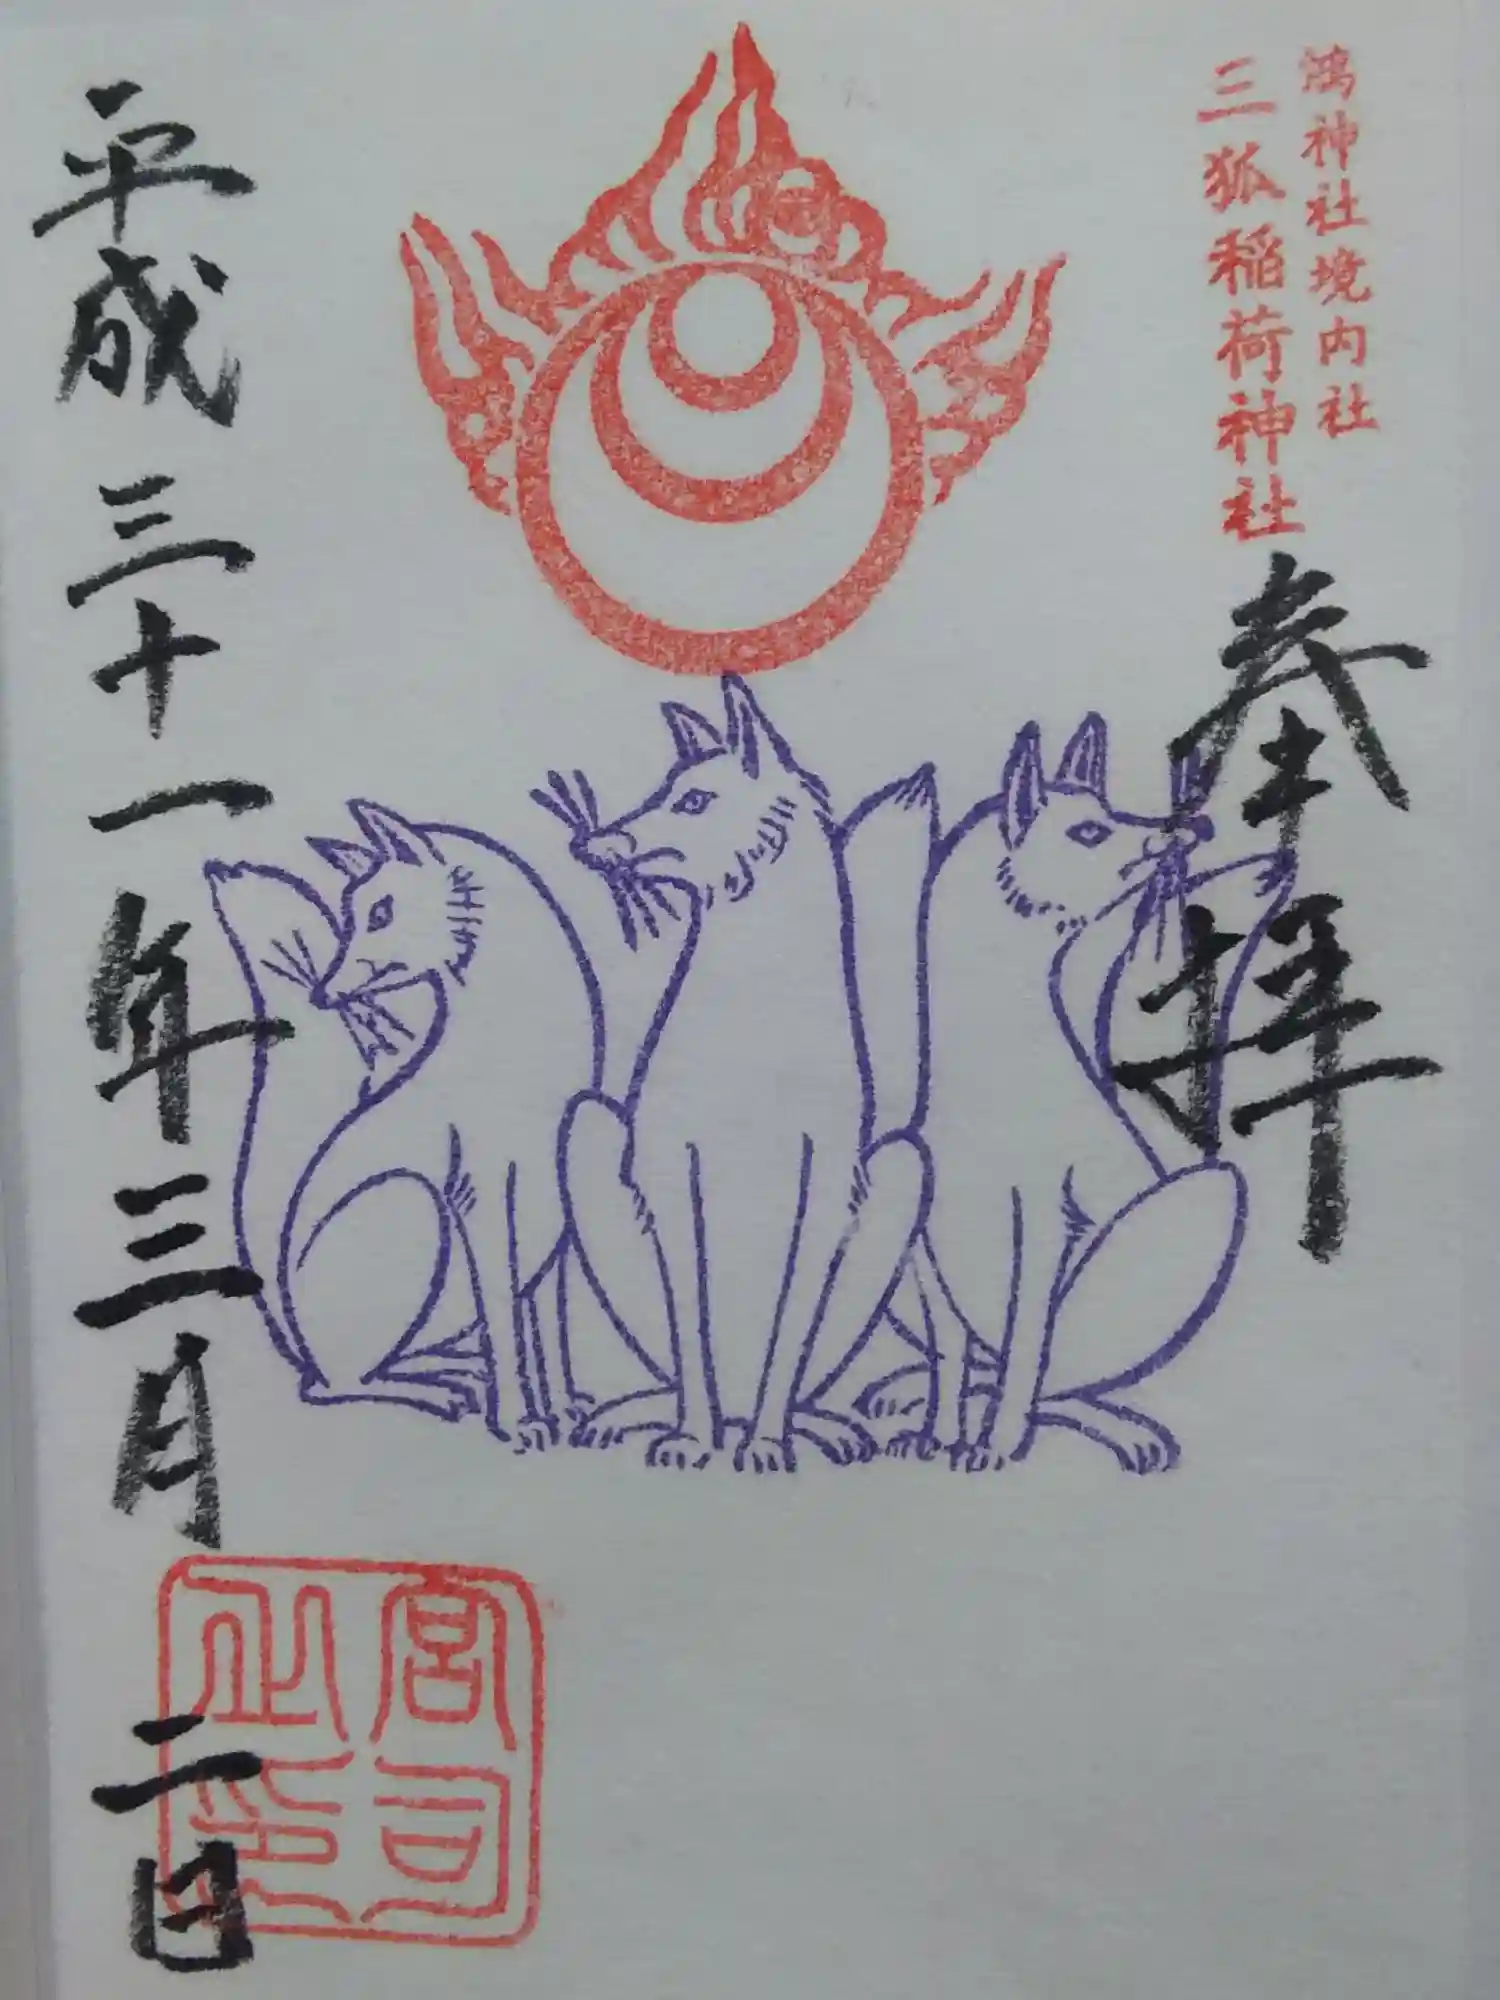 鴻神社境内社
三狐稲荷神社
奉拝
平成三十一年三月二日
宮司之印